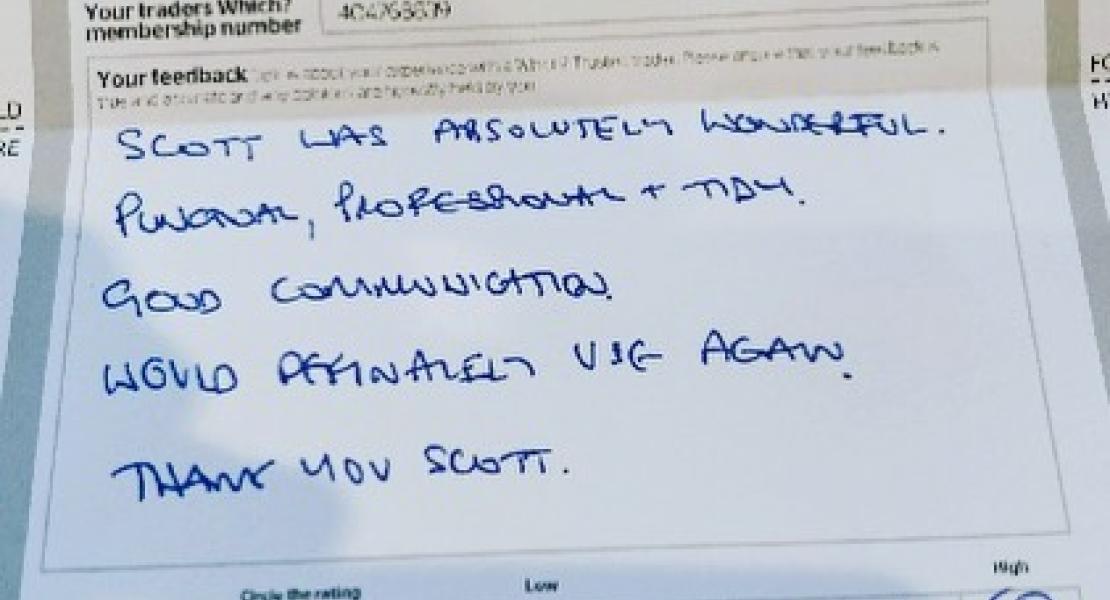 Your traders Which?
membership number
Your feedback
SCOTT WAS ABSOLUTELY WONDERFUL.
PUNCTUAL, PROFESSIONAL + TIDY.
GOOD COMMUNICATION.
WOULD DEFINATELY USE AGAIN.
THANK YOU SCOTT.
Circle the rating Low High